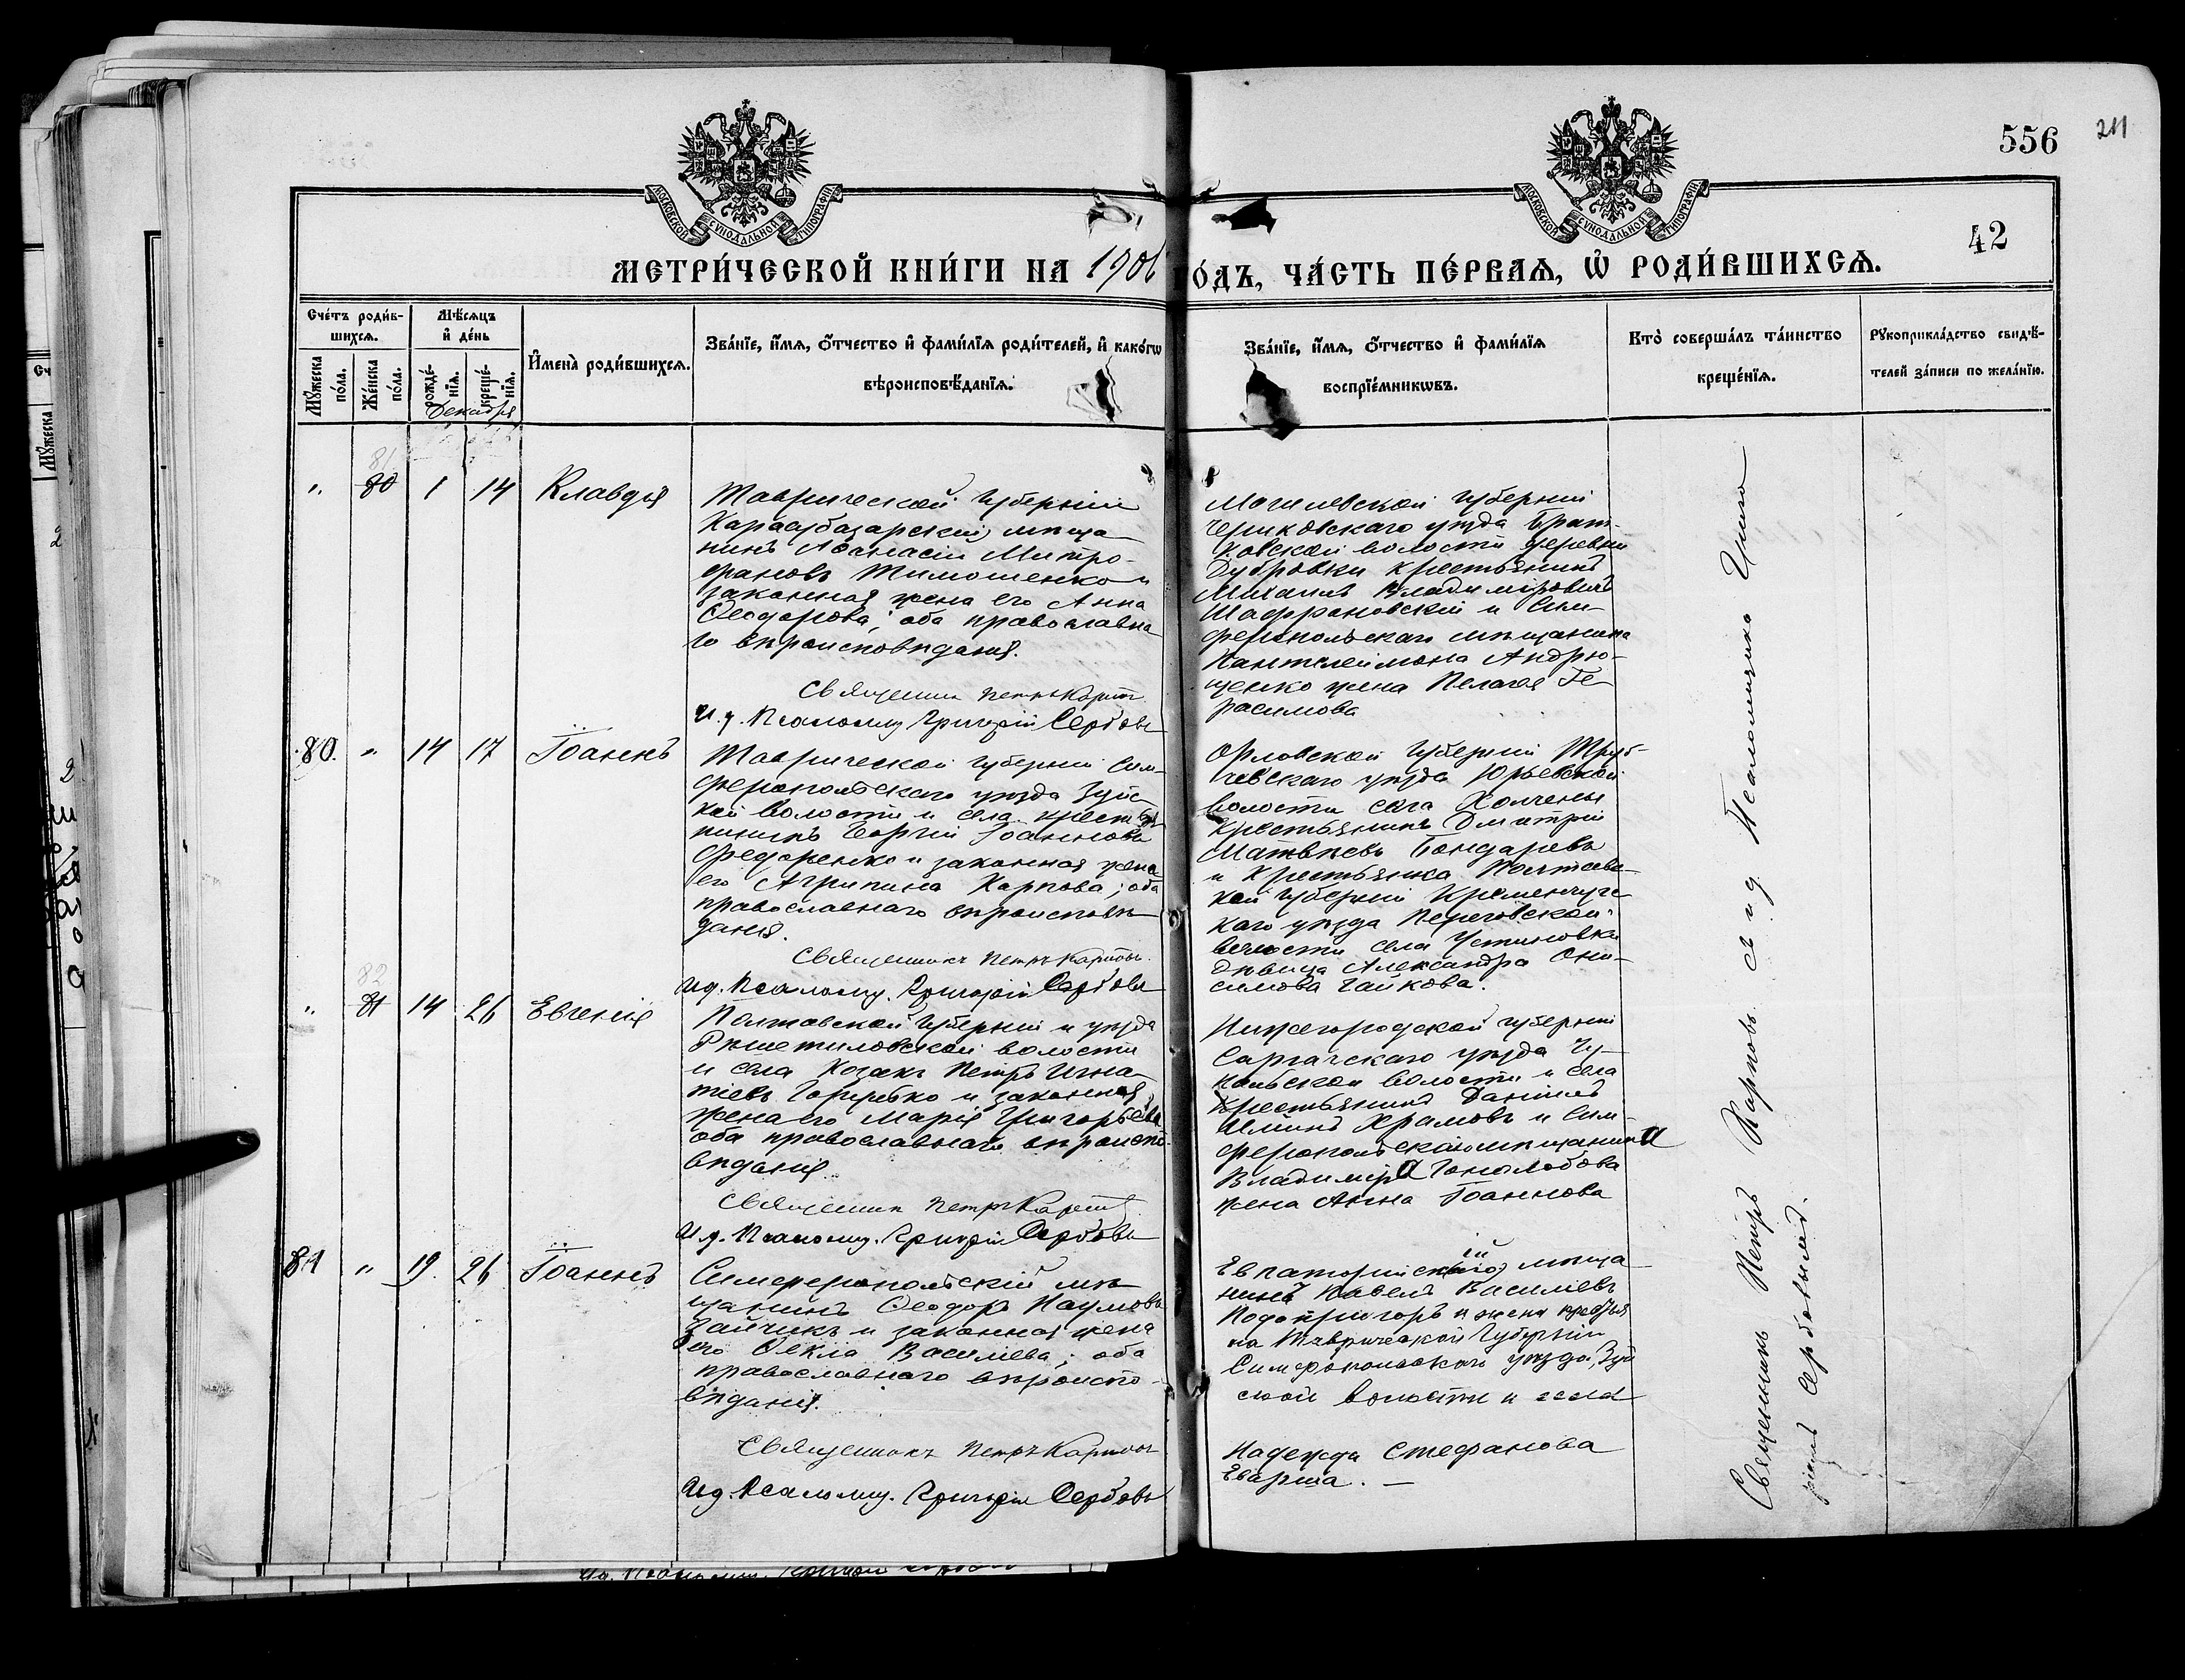 556
211
42
МОСКОВСКОЙ СѴНОДАЛЬНОЙ ТИПОГРАФІИ
МОСКОВСКОЙ СѴНОДАЛЬНОЙ ТИПОГРАФІИ
МЕТРИ́ЧЕСКОЙ КНИ́ГИ НА 1906 ГО́ДЪ, ЧА́СТЬ ПЕ́РВАЯ, Ѡ҆ РОДИ́ВШИХСЯ.
Сче́тъ роди́вшихся.
Мꙋ́жеска по́ла.
Же́нска по́ла.
Мѣ́сяцъ и҆ де́нь
рожде́нїя.
креще́нїя.
Декабрь
И҆мена̀ роди́вшихся.
Зва́нїе, и҆́мя, ѻ҆́тчество и҆ фами́лїя роди́телей, и҆ како́гѡ
вѣроисповѣ́данїя.
Зва́нїе, и҆́мя, ѻ҆́тчество и҆ фами́лїя
воспрїе́мникѡвъ.
Кто̀ соверша́лъ та́инство
креще́нїя.
Рꙋкоприкла́дство свидѣ́-
телей за́писи по жела́нїю.
81
" 80 1 14 Клавдія
Таврической губерніи
Карасубазарскій мѣща-
нинъ Аѳанасій Митро-
фановъ Тимошенко и
законная жена его Анна
Ѳеодорова; оба православна-
го вѣроисповѣданія.
Священникъ Петръ Карповъ
И. д. Псаломщ. Григорій Сербовъ
Могилевской губерніи
Чериковскаго уѣзда Брат-
ковской волости деревни
Дубровки крестьянинъ
Михаилъ Владиміровъ
Шафрановскій и Сим-
феропольскаго мѣщанина
Пантелеимона Андрю-
щенко жена Пелагія Ге-
расимова
80. " 14 17 Іоаннъ
Таврической губерніи Сим-
феропольскаго уѣзда Зуйс-
кой волости и села крестья-
нинъ Георгій Іоанновъ
Федоренко и законная жена
его Агрипина Карпова; оба
православнаго вѣроисповѣ-
данія.
Священникъ Петръ Карповъ.
И. д. Псаломщ. Григорій Сербовъ
Орловской губерніи Труб-
чевскаго уѣзда Юрьевской
волости села
крестьянинъ Дмитрій
Матвѣевъ Бондаревъ
и крестьянка Полтавс-
кой губерніи Кременчугс-
каго уѣзда
волости села Устиновки
дѣвица Александра Они-
симова Чайкова.
82
" 81 14 26 Евгенія
Полтавской губерніи и уѣзда
Рѣшетиловской волости
и села козакъ Петръ Игна-
тіевъ и законная
жена его Марія Григорьева
оба православнаго вѣроиспо-
вѣданія.
Священникъ Петръ Карповъ
И. д. Псаломщ. Григорій Сербовъ
Нижегородской губерніи
Сергачскаго уѣзда
волости и села
крестьянинъ Даніилъ
Храмовъ и Сим-
феропольскаго мѣщанина
Владиміра
жена Анна Іоаннова
81 " 19. 26 Іоаннъ
Симферопольскій мѣ-
щанинъ Ѳеодоръ Наумовъ
Зайчикъ и законная жена
его Ѳекла Василіева; оба
православнаго вѣроиспо-
вѣданія.
Священникъ Петръ Карповъ
И. д. Псаломщ. Григорій Сербовъ
Евпаторійскій мѣща-
нинъ Павелъ Василіевъ
Подопригоръ и жена крестья-
на Таврической Губерніи
Симферопольскаго уѣзда, Зуй-
ской волости и села
Надежда Стефанова
Священникъ Петръ Карповъ съ и. д. Псаломщика
Сербовымъ.